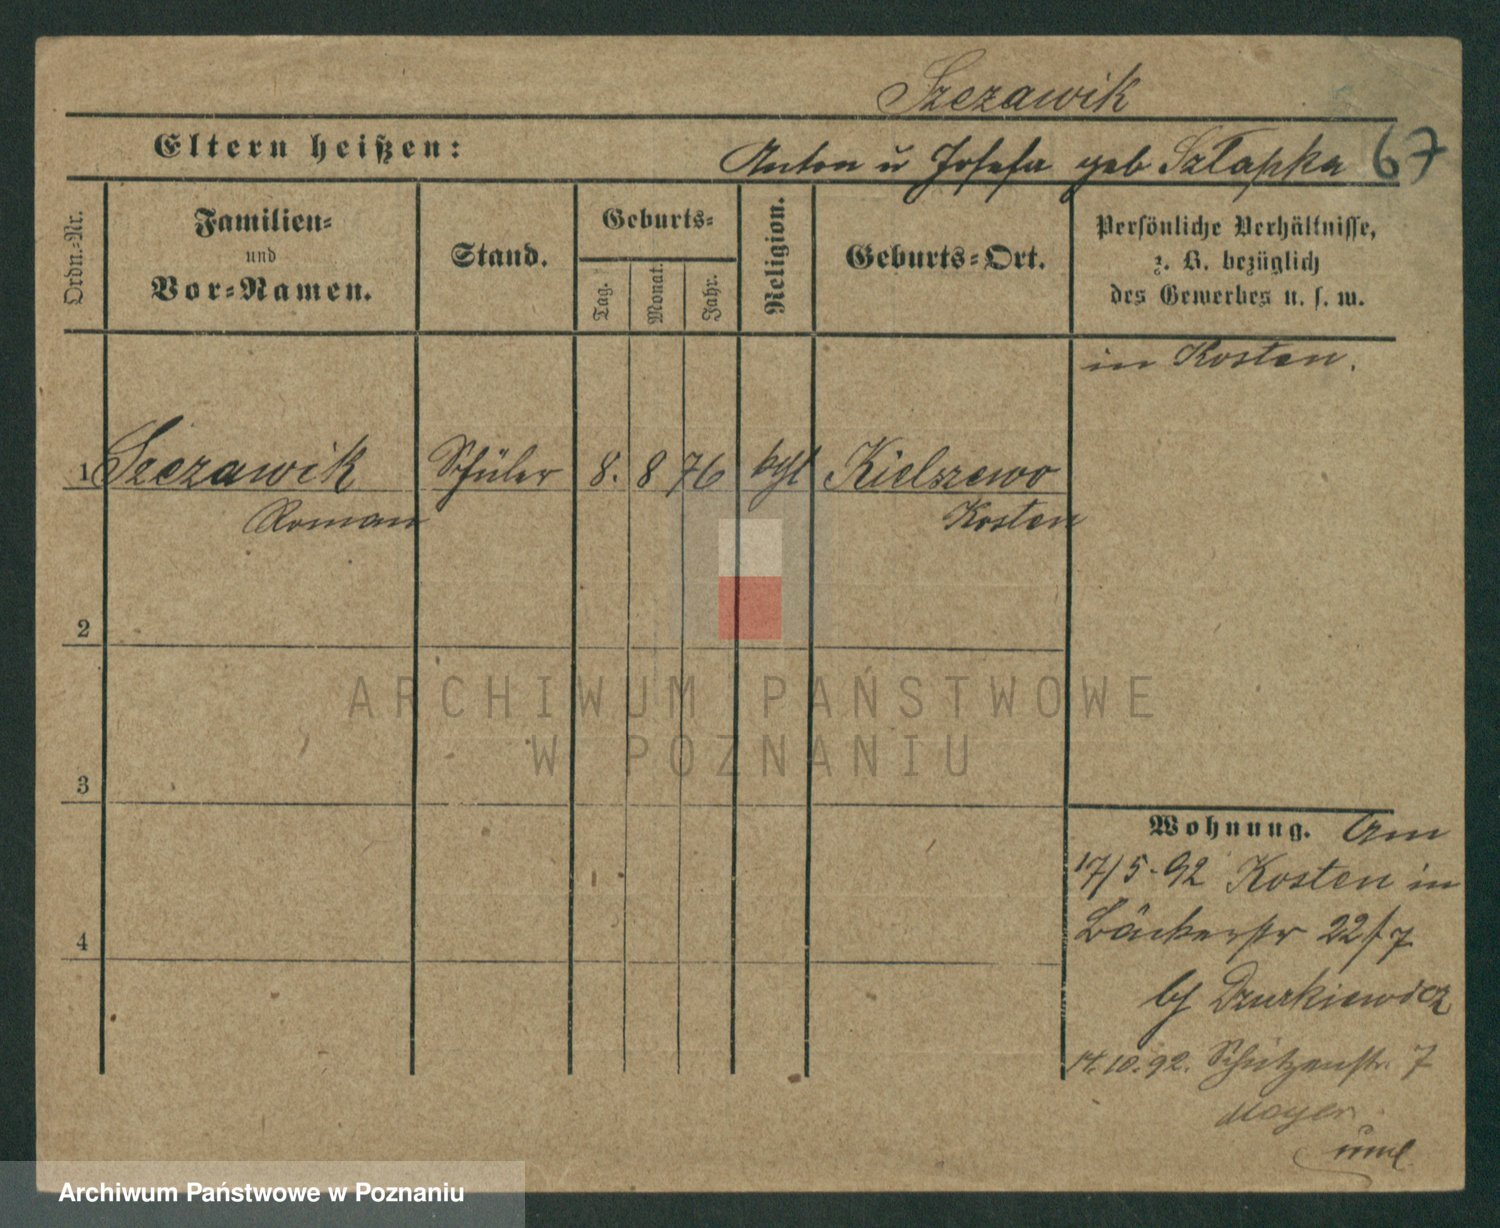 Szczawik
Eltern heißen: Anton u Josefa geb Szłapka 67
Ordn.-Nr.
Familien-
und
Vor-Namen.
Stand.
Geburts-
Tag.
Monat.
Jahr.
Religion.
Geburts-Ort.
Persönliche Verhältnisse,
z. B. bezüglich
des Gewerbes u. s. w.
in Kosten.
1 Szczawik Schüler 8. 8 76 kath Kielszewo
Roman Kosten
2
3
4
Wohnung. Am
17/5.92 Kosten in
Bäckerstr 22/7
bj Dzurkiewicz
14.10.92. Schützenstr. 7
Mayer
ARCHIWUM PAŃSTWOWE
W POZNANIU
Archiwum Państwowe w Poznaniu